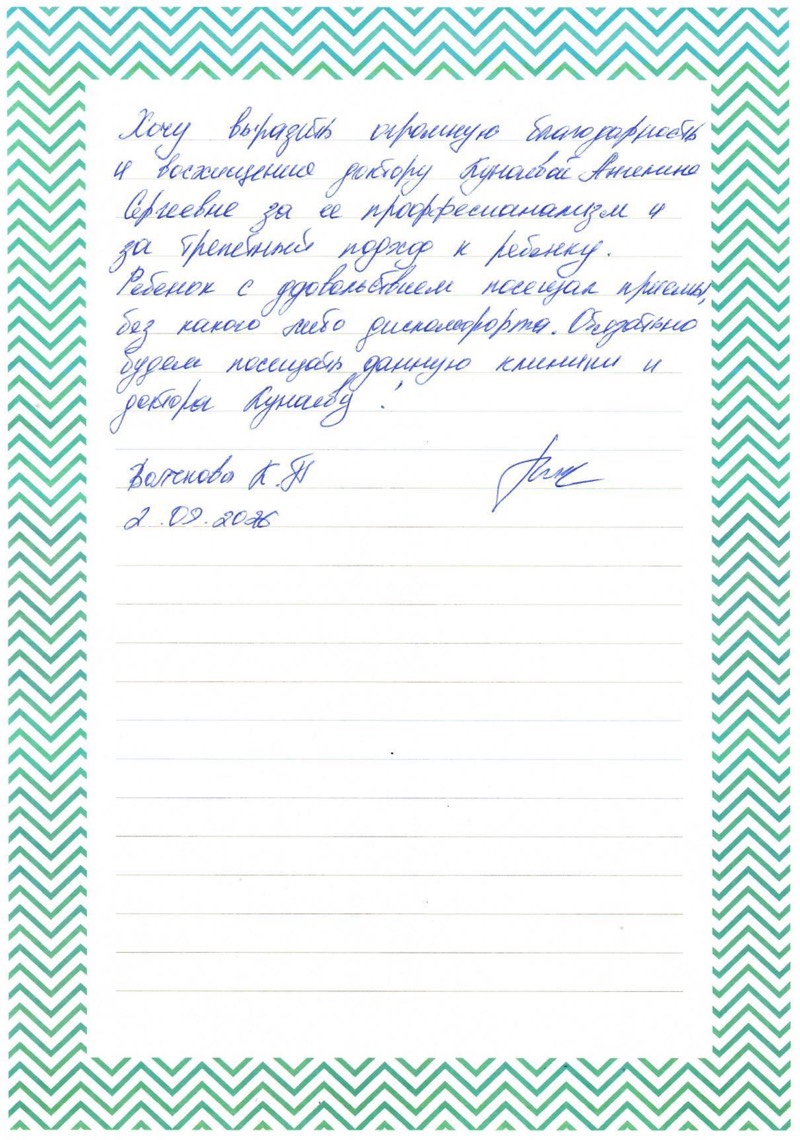 Хочу выразить огромную благодарность
и восхищение доктору Кунаевой Ангелине
Сергеевне за ее проффесианализм и
за трепетный подход к ребенку.
Ребенок с удовольствием посещал приемы,
без какого либо дискомфорта. Обязательно
будем посещать данную клинику и
доктора Кунаеву!
К.
2.09.2026